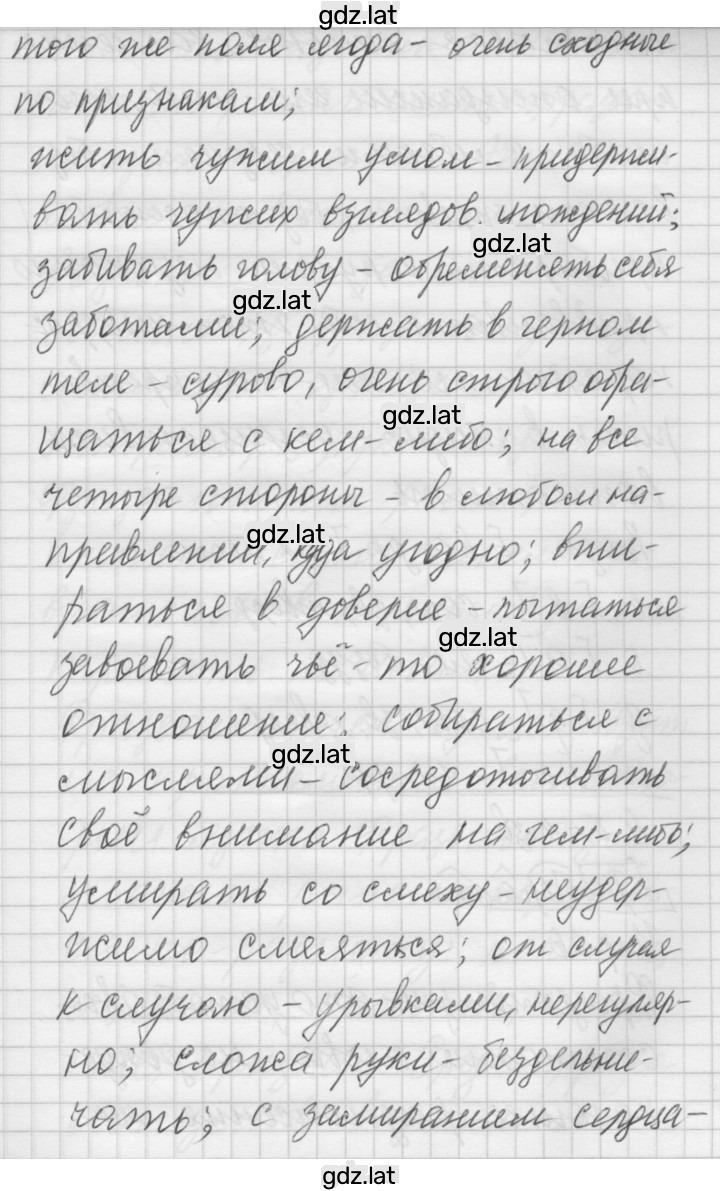 gdz.lat
того же поля ягода - очень сходные
по признакам;
жить чужим умом - придержи-
вать чужих взглядов.
gdz.lat
забивать голову - обременять себя
gdz.lat
заботами; держать в черном
теле - сурово, очень строго обра-
gdz.lat
щаться с кем-либо; на все
четыре стороны - в любом на-
gdz.lat
правлении, куда угодно; вти-
раться в доверие - пытаться
gdz.lat
завоевать чьё-то хорошее
отношение; собираться с
gdz.lat
мыслями - сосредоточивать
своё внимание на чем-либо;
умирать со смеху - неудер-
жимо смеяться; от случая
к случаю - урывками, нерегуляр-
но; сложа руки - бездельни-
чать; с замиранием сердца -
gdz.lat